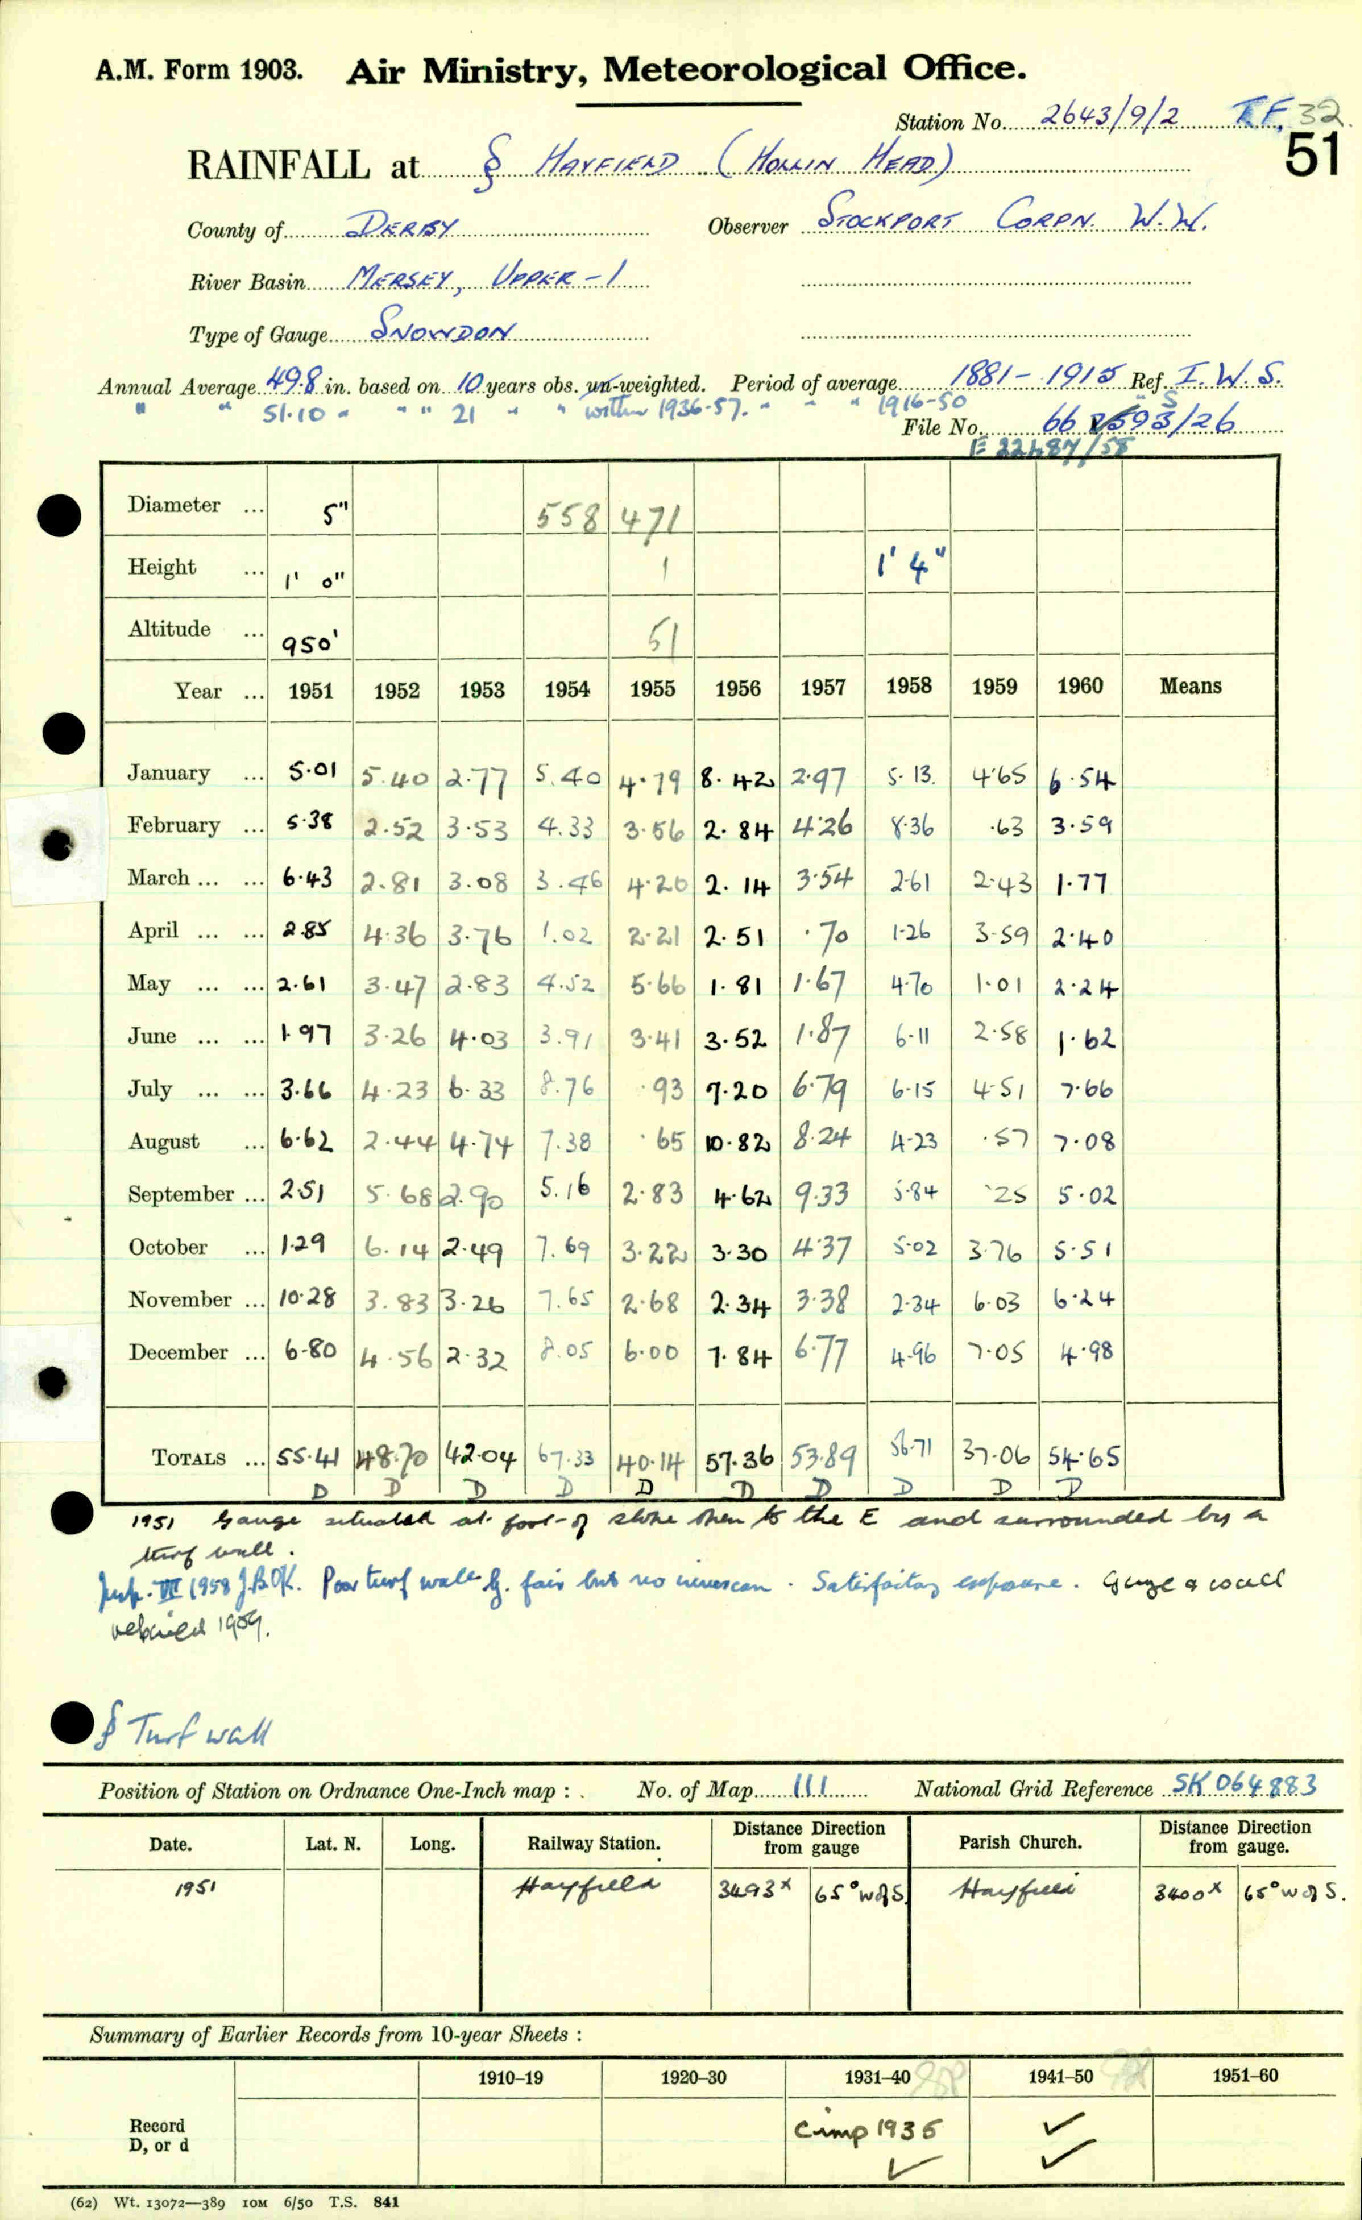 A.M. Form 1903. Air Ministry, Meteorological Office.
Station No. 2643/9/2 32
51
RAINFALL at § HAYFIELD (HOLLIN HEAD)
County of DERBY Observer STOCKPORT CORPN. W.W.
River Basin MERSEY, UPPER-1
Type of Gauge SNOWDON
Annual Average 49.8 in. based on 10 years obs. un-weighted. Period of average 1881-1915 Ref. I.W.S.
" " 51.10 " " " 21 " " within 1936-57. " " " 1916-50 " S
File No. 66 593/26
E 22487/58
Diameter ... 5" 558 471
Height ... 1' 0" 1 1' 4"
Altitude ... 950' 51
Year ... 1951 1952 1953 1954 1955 1956 1957 1958 1959 1960 Means
January ... 5.01 5.40 2.77 5.40 4.79 8.42 2.97 5.13 4.65 6.54
February ... 5.38 2.52 3.53 4.33 3.56 2.84 4.26 8.36 .63 3.59
March ... ... 6.43 2.81 3.08 3.46 4.20 2.14 3.54 2.61 2.43 1.77
April ... ... 2.85 4.36 3.76 1.02 2.21 2.51 .70 1.26 3.59 2.40
May ... ... 2.61 3.47 2.83 4.52 5.66 1.81 1.67 4.70 1.01 2.24
June ... ... 1.97 3.26 4.03 3.91 3.41 3.52 1.87 6.11 2.58 1.62
July ... ... 3.66 4.23 6.33 8.76 .93 7.20 6.79 6.15 4.51 7.66
August ... 6.62 2.44 4.74 7.38 .65 10.82 8.24 4.23 .57 7.08
September ... 2.51 5.68 2.90 5.16 2.83 4.62 9.33 5.84 .25 5.02
October ... 1.29 6.14 2.49 7.69 3.22 3.30 4.37 5.02 3.76 5.51
November ... 10.28 3.83 3.26 7.65 2.68 2.34 3.38 2.34 6.03 6.24
December ... 6.80 4.56 2.32 8.05 6.00 7.84 6.77 4.96 7.05 4.98
TOTALS ... 55.41 48.70 42.04 67.33 40.14 57.36 53.89 56.71 37.06 54.65
D D D D D D D D D D
1951 Gauge situated at foot of stone to the E and surrounded by a
turf wall.
Insp. VII 1958 J.B. OK. Poor turf wall fair but no inverscan. Satisfactory exposure. Gauge & wall
rebuilt 1959.
§ Turf wall
Position of Station on Ordnance One-Inch map : . No. of Map 111 National Grid Reference SK 064883
Date. Lat. N. Long. Railway Station. Distance Direction from gauge Parish Church. Distance Direction from gauge.
1951 Hayfield 3493x 65° W of S. Hayfield 3400x 65° W of S.
Summary of Earlier Records from 10-year Sheets :
1910–19 1920–30 1931–40 1941–50 1951–60
Record Cimp 1935 ✓
D, or d ✓ ✓
(62) Wt. 13072—389 10M 6/50 T.S. 841